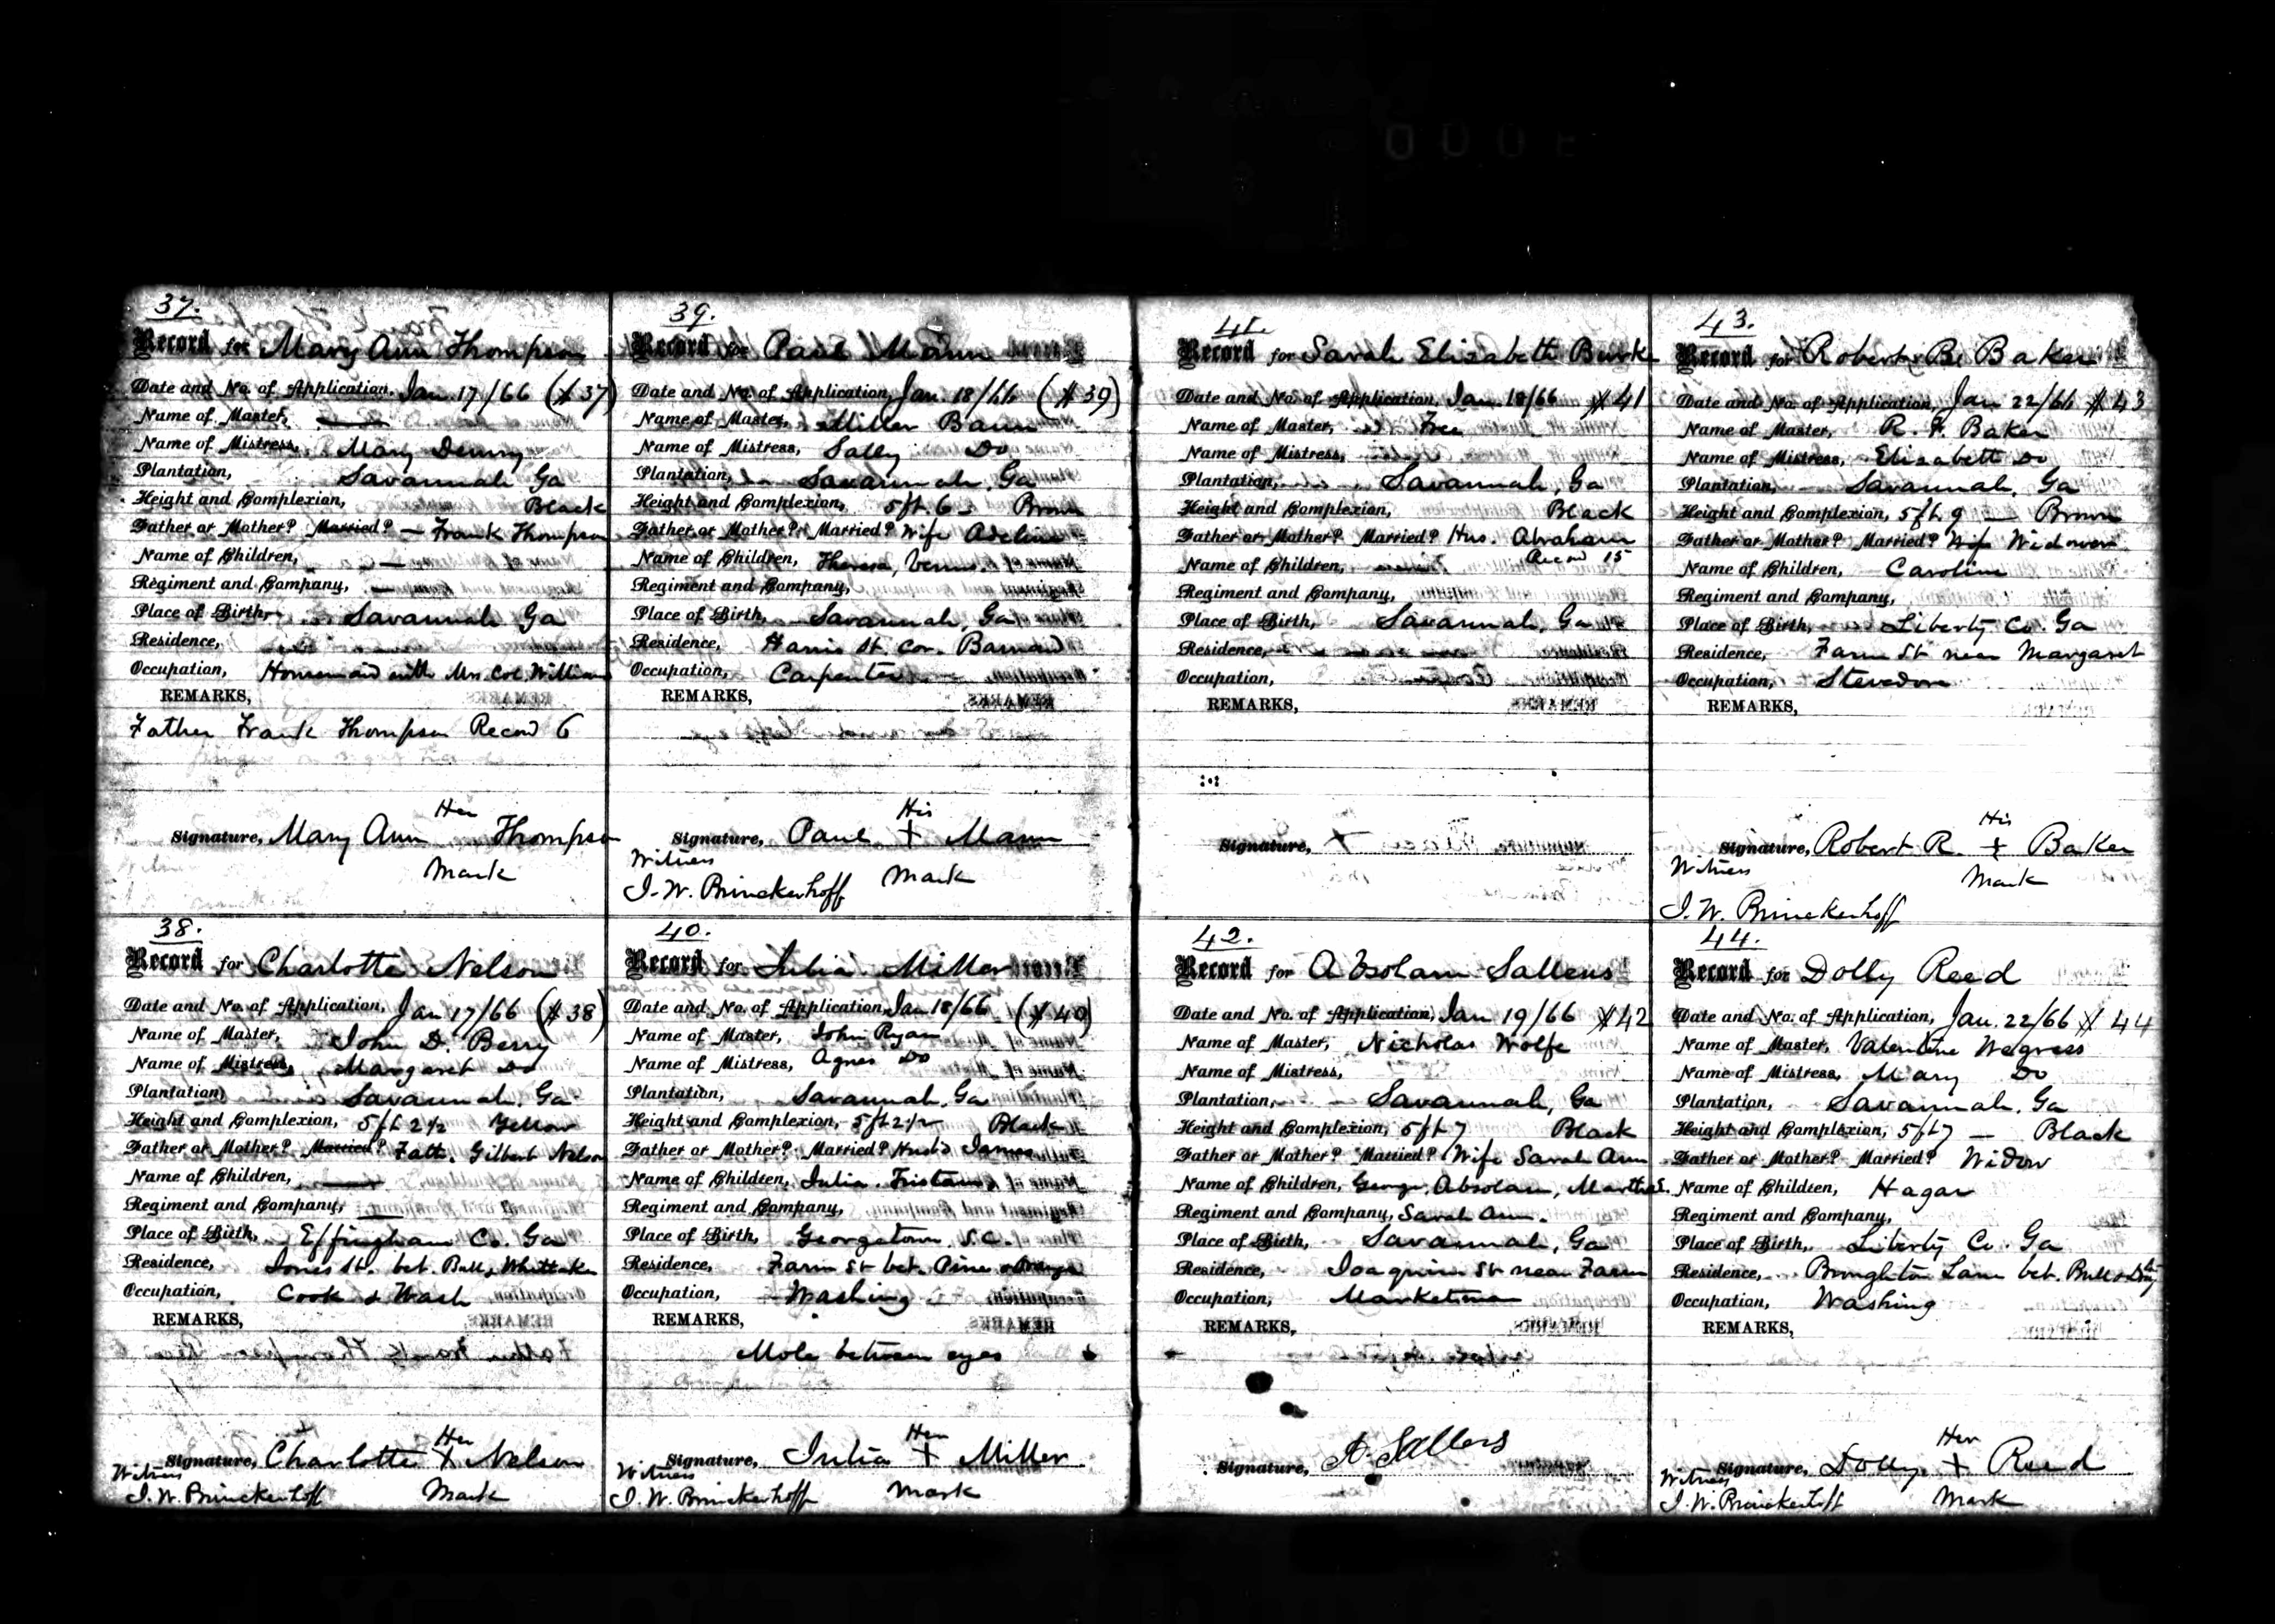 37.
Record for Mary Ann Thompson
Date and No. of Application, Jan. 17/66 (# 37)
Name of Master, —
Name of Mistress, Mary Denny
Plantation, Savannah Ga
Height and Complexion, Black
Father or Mother? Married? — Frank Thompson
Name of Children, —
Regiment and Company, —
Place of Birth, Savannah Ga
Residence,
Occupation, Housemaid with Mrs. Col. Williams
REMARKS,
Father Frank Thompson Record 6
Her
Signature, Mary Ann Thompson
Mark
38.
Record for Charlotte Nelson
Date and No. of Application, Jan 17/66 (# 38)
Name of Master, John D. Berry
Name of Mistress, Margaret Do
Plantation, Savannah, Ga
Height and Complexion, 5 ft 2 1/2 Yellow
Father or Mother? Married? Fath. Gilbert Nelson
Name of Children, —
Regiment and Company, —
Place of Birth, Effingham Co. Ga
Residence, Jones St. bet. Bull & Whittaker
Occupation, Cook & Wash
REMARKS,
Her
Signature, Charlotte + Nelson
Witness
J. W. Brinckerhoff Mark
39.
Record for Paul Mann
Date and No. of Application, Jan. 18/66 (# 39)
Name of Master, Miller
Name of Mistress, Sally Do
Plantation, Savannah, Ga
Height and Complexion, 5 ft. 6 Brown
Father or Mother? Married? Wife Adeline
Name of Children, Theresa, Venus.
Regiment and Company,
Place of Birth, Savannah, Ga
Residence, Harris St. Cor. Barnard
Occupation, Carpenter
REMARKS,
His
Signature, Paul + Mann
Witness
J. W. Brinckerhoff Mark
40.
Record for Julia Miller
Date and No. of Application, Jan 18/66 (# 40)
Name of Master, John Ryan
Name of Mistress, Agnes Do
Plantation, Savannah, Ga
Height and Complexion, 5 ft 2 1/2 Black
Father or Mother? Married? Husbd James
Name of Children, Julia.
Regiment and Company,
Place of Birth, Georgetown S.C.
Residence, Farm St bet. Pine & Orange
Occupation, Washing
REMARKS,
Mole between eyes
Her
Signature, Julia + Miller
Witness
J. W. Brinckerhoff Mark
41.
Record for Sarah Elizabeth Burk
Date and No. of Application, Jan. 18/66 # 41
Name of Master, Free
Name of Mistress,
Plantation, Savannah, Ga
Height and Complexion, Black
Father or Mother? Married? Hus. Abraham
Record 15
Name of Children,
Regiment and Company,
Place of Birth, Savannah, Ga
Residence,
Occupation,
REMARKS,
Signature, +
42.
Record for Absolam Sallens
Date and No. of Application, Jan 19/66 # 42
Name of Master, Nicholas Wolfe
Name of Mistress,
Plantation, Savannah, Ga
Height and Complexion, 5 ft 7 Black
Father or Mother? Married? Wife Sarah Ann
Name of Children, George, Absolam, Martha S.
Regiment and Company, Sarah Ann.
Place of Birth, Savannah, Ga
Residence, Joaquin St near Farm
Occupation, Marketman
REMARKS,
Signature, A. Sallers
43.
Record for Robert R. Baker
Date and No. of Application, Jan 22/66 # 43
Name of Master, R. F. Baker
Name of Mistress, Elizabeth Do
Plantation, Savannah, Ga
Height and Complexion, 5 ft 9 — Brown
Father or Mother? Married? Widower
Name of Children, Caroline
Regiment and Company,
Place of Birth, Liberty Co. Ga
Residence, Farm St near Margaret
Occupation, Stevedore
REMARKS,
His
Signature, Robert R. + Baker
Witness
Mark
J. W. Brinckerhoff
44.
Record for Dolly Reed
Date and No. of Application, Jan. 22/66 # 44
Name of Master, Valentine
Name of Mistress, Mary Do
Plantation, Savannah, Ga
Height and Complexion, 5 ft 7 — Black
Father or Mother? Married? Widow
Name of Children, Hagar
Regiment and Company,
Place of Birth, Liberty Co. Ga
Residence, Broughton Lane bet. Bull &
Occupation, Washing
REMARKS,
Her
Signature, Dolly + Reed
Witness
J. W. Brinckerhoff Mark